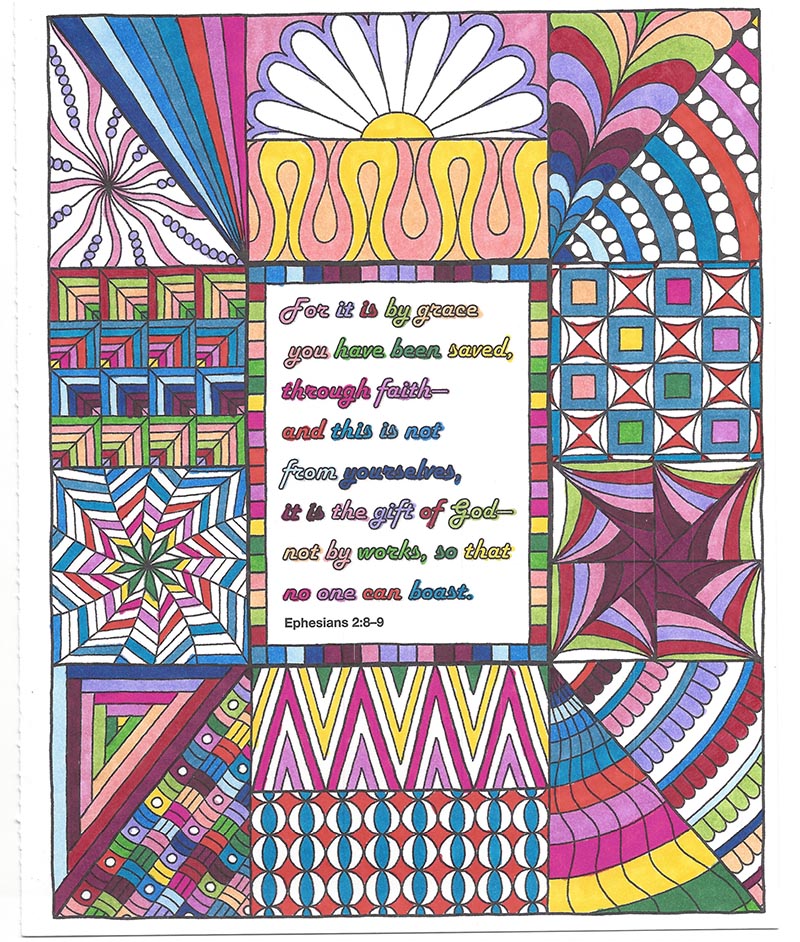 For it is by grace
you have been saved,
through faith—
and this is not
from yourselves,
it is the gift of God—
not by works, so that
no one can boast.
Ephesians 2:8–9